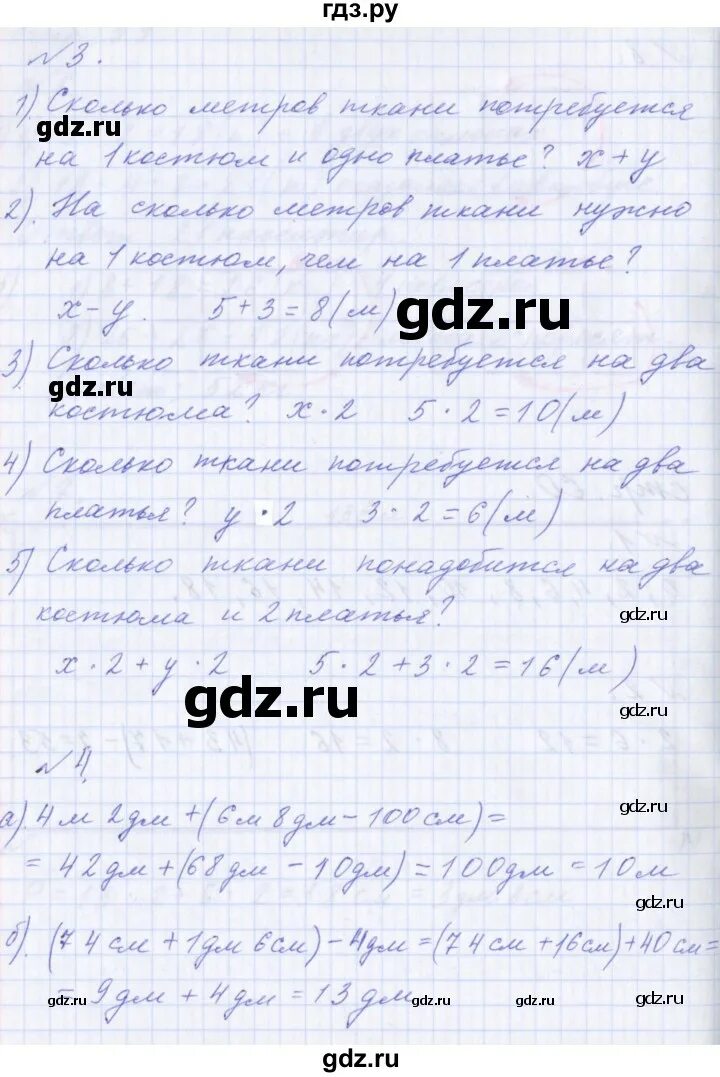 гдз.ру
№3.
1) Сколько метров ткани потребуется
gdz.ru
на 1 костюм и одно платье? x + y
2). На сколько метров ткани нужно
на 1 костюм, чем на 1 платье?
x - y. 5 + 3 = 8 (м)
gdz.ru
3) Сколько ткани потребуется на два
gdz.ru
костюма? x · 2 5 · 2 = 10 (м)
4) Сколько ткани потребуется на два
платья? y · 2 3 · 2 = 6 (м)
5) Сколько ткани понадобится на два
костюма и 2 платья?
gdz.ru
x · 2 + y · 2 5 · 2 + 3 · 2 = 16 (м)
gdz.ru
gdz.ru
№4
а). 4 м 2 дм + (6 м 8 дм - 100 см) =
gdz.ru
= 42 дм + (68 дм - 10 дм) = 100 дм = 10 м
gdz.ru
б). (74 см + 1 дм 6 см) - 4 дм = (74 см + 16 см) + 40 см =
= 9 дм + 4 дм = 13 дм
gdz.ru gdz.ru gdz.ru
gdz.ru